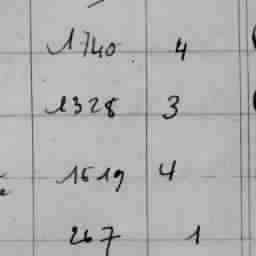 1740 4
1328 3
1619 4
267 1